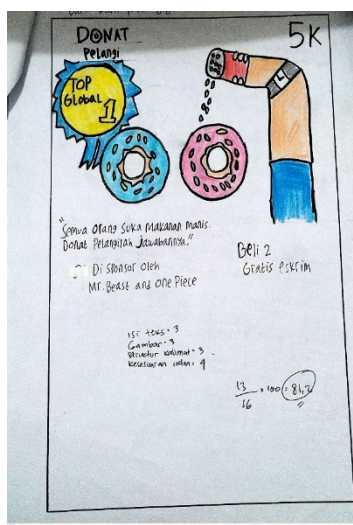 DONAT
Pelangi
5K
TOP
Global
1
"Semua orang suka makanan manis.
Donat Pelangilah Jawabannya."
Di Sponsor oleh
Mr. Beast and One Piece
Beli 2
Gratis eskrim
isi teks = 3
Gambar = 3
struktur kalimat = 3
kesesuaian iklan = 4
13/16 x 100 = 81,2